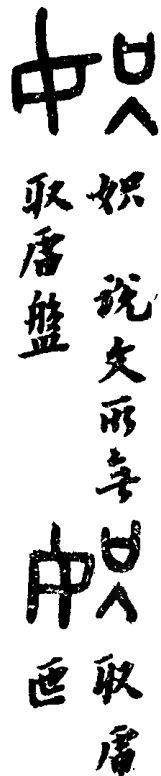 說文所無
取膚盤
取膚
匜